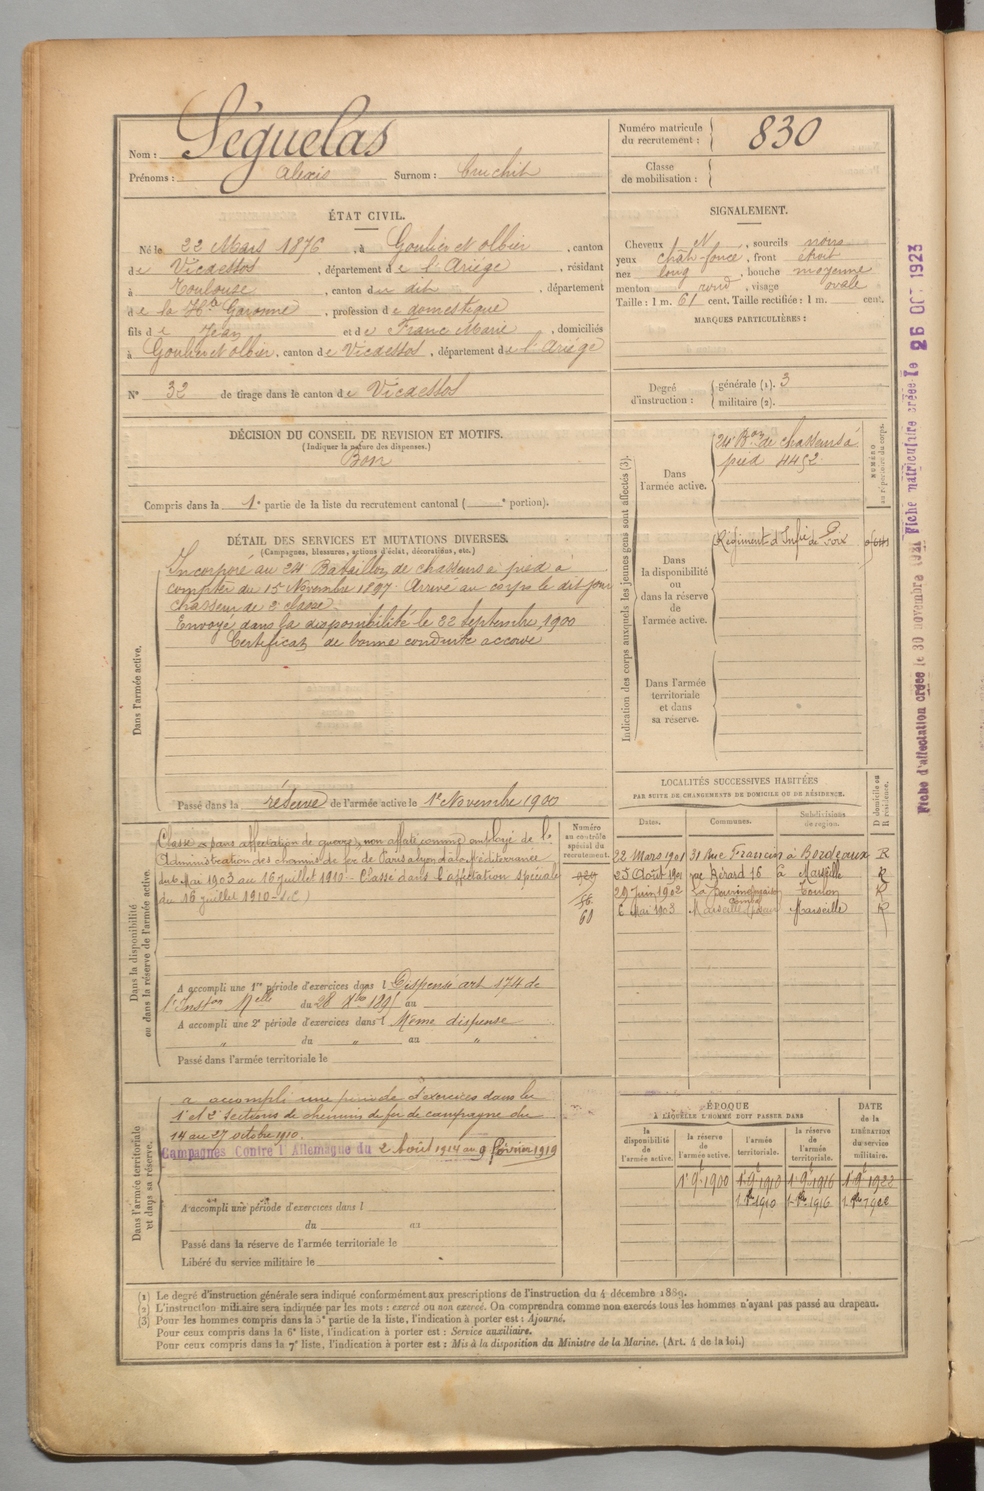 Nom : Séguelas
Prénoms : Alexis Surnom : Cruchit
Numéro matricule du recrutement : 830
Classe de mobilisation :
ÉTAT CIVIL.
Né le 22 Mars 1876, à Goulier et Olbier, canton
de Vicdessos, département de l'Ariège, résidant
à Toulouse, canton du dit, département
de la Hte Garonne, profession de domestique
fils de Jean et de Franc Marie, domiciliés
à Goulier et Olbier, canton de Vicdessos, département de l'Ariège
N° 32 de tirage dans le canton de Vicdessos
SIGNALEMENT.
Cheveux N, sourcils noirs
yeux chât-foncé, front étroit
nez long, bouche moyenne
menton rond, visage ovale
Taille : 1 m. 61 cent. Taille rectifiée : 1 m. cent.
MARQUES PARTICULIÈRES :
Degré d'instruction : générale (1). 3
militaire (2).
DÉCISION DU CONSEIL DE REVISION ET MOTIFS.
(Indiquer la nature des dispenses.)
Bon
Compris dans la 1e partie de la liste du recrutement cantonal ( e portion).
DÉTAIL DES SERVICES ET MUTATIONS DIVERSES.
(Campagnes, blessures, actions d'éclat, décorations, etc.)
Dans l'armée active.
Incorporé au 24 Bataillon de chasseurs à pied à
compter du 15 Novembre 1897. Arrivé au corps le dit jour
chasseur de 2e classe.
Envoyé dans la disponibilité le 22 Septembre 1900
Certificat de bonne conduite accordé
Passé dans la réserve de l'armée active le 1er Novembre 1900
Indication des corps auxquels les jeunes gens sont affectés (3).
NUMÉRO au répertoire du corps.
Dans l'armée active.
24 Bon de chasseurs à
pied 4452
Dans la disponibilité ou dans la réserve de l'armée active.
Régiment d'Infie de Foix
Dans l'armée territoriale et dans sa réserve.
LOCALITÉS SUCCESSIVES HABITÉES
PAR SUITE DE CHANGEMENTS DE DOMICILE OU DE RÉSIDENCE.
Dates. Communes. Subdivisions de région. D domicile ou R résidence.
22 Mars 1901 31 Rue Francin à Bordeaux R
25 Août 1901 rue Bérard 16 à Marseille R
29 Juin 1902 Toulon R
6 Mai 1903 Marseille Marseille R
Dans la disponibilité ou dans la réserve de l'armée active.
Numéro au contrôle spécial du recrutement.
Classé "sans affectation de guerre" non affecté comme employé de l'
Administration des chemins de fer de Paris à Lyon et à la Méditerranée
du 6 Mai 1903 au 16 juillet 1910 - Classé dans l'affectation spéciale
du 16 juillet 1910
60
A accompli une 1re période d'exercices dans l Dispensé art 174 de
l'Inston Melle du 28 Xbre 1895 au
A accompli une 2e période d'exercices dans l Même dispense
" du " au "
Passé dans l'armée territoriale le
Dans l'armée territoriale et dans sa réserve.
a accompli une période d'exercices dans les
1e et 2e Sections de chemins de fer de campagne du
14 au 27 octobre 1910.
Campagnes Contre l'Allemagne du 2 Août 1914 au 9 février 1919
A accompli une période d'exercices dans l
du au
Passé dans la réserve de l'armée territoriale le
Libéré du service militaire le
ÉPOQUE
A LAQUELLE L'HOMME DOIT PASSER DANS
la disponibilité de l'armée active. la réserve de l'armée active. l'armée territoriale. la réserve de l'armée territoriale.
DATE de la LIBÉRATION du service militaire.
1er 9bre 1900 1er 9bre 1910 1er 9bre 1916 1er 9bre 1922
1910 1916 1922
(1) Le degré d'instruction générale sera indiqué conformément aux prescriptions de l'instruction du 4 décembre 1889.
(2) L'instruction militaire sera indiquée par les mots : exercé ou non exercé. On comprendra comme non exercés tous les hommes n'ayant pas passé au drapeau.
(3) Pour les hommes compris dans la 5e partie de la liste, l'indication à porter est : Ajourné.
Pour ceux compris dans la 6e liste, l'indication à porter est : Service auxiliaire.
Pour ceux compris dans la 7e liste, l'indication à porter est : Mis à la disposition du Ministre de la Marine. (Art. 4 de la loi.)
Fiche d'affectation créée le 30 novembre Fiche matriculaire créée le 26 OCT 1923